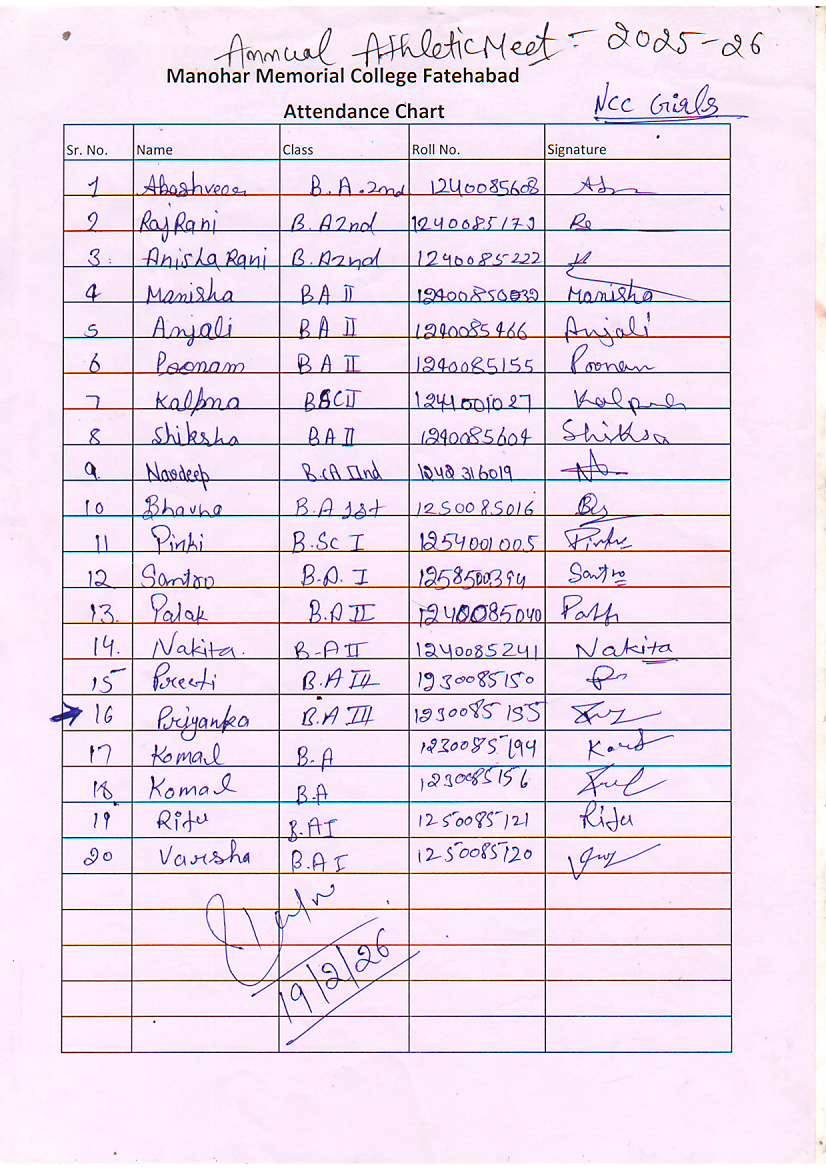 Annual Athletic Meet :- 2025-26
Manohar Memorial College Fatehabad
Attendance Chart
NCC Girls
Sr. No. Name Class Roll No. Signature
1 B.A.2nd 1240085608
2 Raj Rani B.A2nd 1240085173
3. Anisha Rani B.A2nd 1240085222
4 Manisha BA II Manisha
5 Anjali BA II 1240085466 Anjali
6 Poonam BA II 1240085155 Poonam
7 Kalpna BSC II 1241001027
8 Shiksha BA II 1240085604
9. Navdeep B.CA IInd
10 Bhavna B.A 1st 1250085016
11 Pinki B.Sc I 1254001005
12 Santro B.A. I Santro
13. Palak B.A II 1240085040
14. Nakita. B-A II 1240085241 Nakita
15 Preeti B.A III 1230085150
16 Priyanka B.A III 1230085155
17 Komal B.A 1230085194
18 Komal B.A 1230085156
19 Ritu B.A I 1250085121 Ritu
20 Varsha B.A I 1250085120
19/2/26